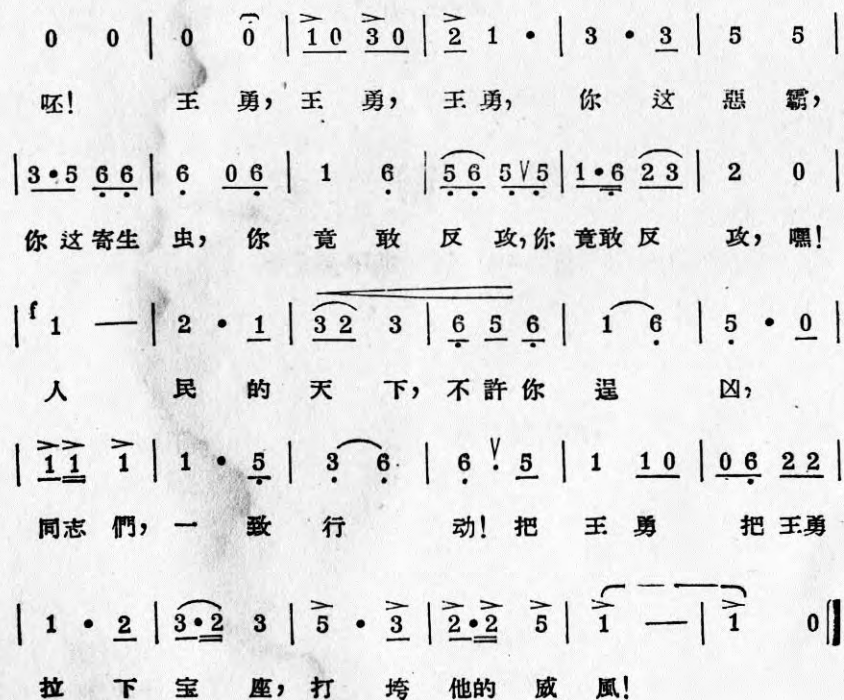 0 0 | 0 0 | 1 0 3 0 | 2 1 • | 3 • 3 | 5 5 |
呸! 王 勇, 王 勇, 王 勇, 你 这 惡 霸,
| 3 • 5 6 6 | 6 0 6 | 1 6 | 5 6 5 V 5 | 1 • 6 2 3 | 2 0 |
你 这 寄生 虫, 你 竟 敢 反 攻, 你 竟敢 反 攻, 嘿!
| f 1 — | 2 • 1 | 3 2 3 | 6 5 6 | 1 6 | 5 • 0 |
人 民 的 天 下, 不 許 你 逞 凶,
| 1 1 1 | 1 • 5 | 3 6 | 6 • V 5 | 1 1 0 | 0 6 2 2 |
同志 們, 一 致 行 动! 把 王 勇 把 王勇
| 1 • 2 | 3 • 2 3 | 5 • 3 | 2 • 2 5 | 1 — | 1 0 ‖
拉 下 宝 座, 打 垮 他的 威 風!